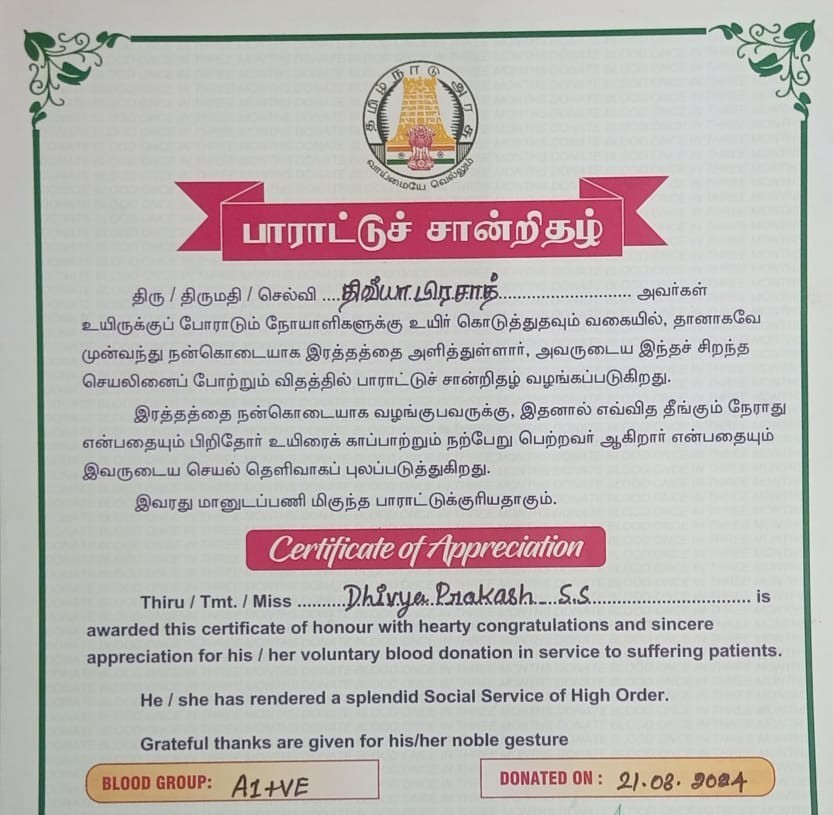 தமிழ்நாடு அரசு
வாய்மையே வெல்லும்
பாராட்டுச் சான்றிதழ்
திரு / திருமதி / செல்வி ....திவ்யா பிரசாத்............................ அவர்கள்
உயிருக்குப் போராடும் நோயாளிகளுக்கு உயிர் கொடுத்துதவும் வகையில், தானாகவே
முன்வந்து நன்கொடையாக இரத்தத்தை அளித்துள்ளார், அவருடைய இந்தச் சிறந்த
செயலினைப் போற்றும் விதத்தில் பாராட்டுச் சான்றிதழ் வழங்கப்படுகிறது.
இரத்தத்தை நன்கொடையாக வழங்குபவருக்கு, இதனால் எவ்வித தீங்கும் நேராது
என்பதையும் பிறிதோர் உயிரைக் காப்பாற்றும் நற்பேறு பெற்றவர் ஆகிறார் என்பதையும்
இவருடைய செயல் தெளிவாகப் புலப்படுத்துகிறது.
இவரது மானுடப்பணி மிகுந்த பாராட்டுக்குரியதாகும்.
Certificate of Appreciation
Thiru / Tmt. / Miss ..........Dhivya Prakash S.S................................ is
awarded this certificate of honour with hearty congratulations and sincere
appreciation for his / her voluntary blood donation in service to suffering patients.
He / she has rendered a splendid Social Service of High Order.
Grateful thanks are given for his/her noble gesture
BLOOD GROUP: A1+VE DONATED ON : 21.08.2024